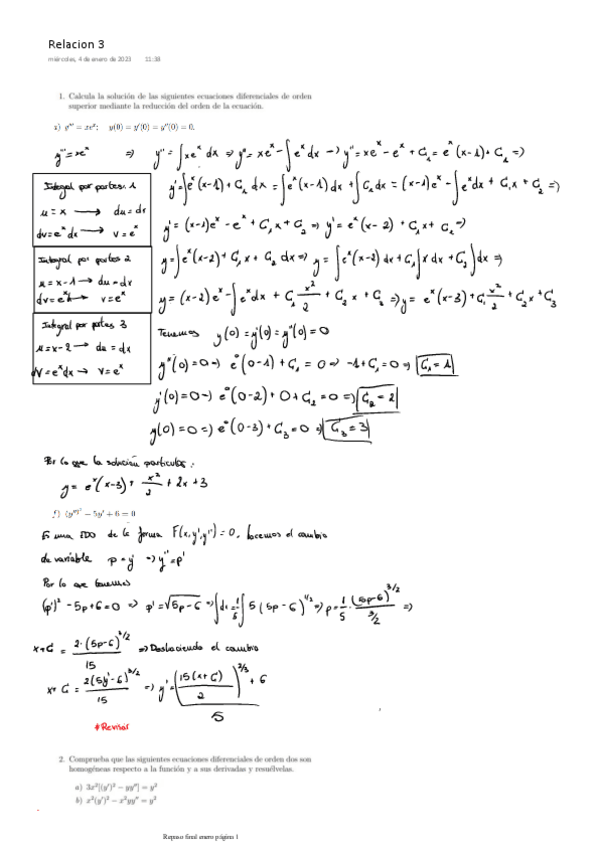 Relacion 3
miércoles, 4 de enero de 2023 11:38
1. Calcula la solución de las siguientes ecuaciones diferenciales de orden
superior mediante la reducción del orden de la ecuación.
a) y''' = xeˣ; y(0) = y'(0) = y''(0) = 0.
y''' = xeˣ ⇒ y'' = ∫xeˣ dx ⇒ y'' = xeˣ - ∫eˣ dx → y'' = xeˣ - eˣ + C₁ = eˣ(x-1) + C₁ ⇒
Integral por partes: 1
u = x → du = dx
dv = eˣ dx → v = eˣ
y' = ∫eˣ(x-1) + C₁ dx = ∫eˣ(x-1) dx + ∫C₁ dx = (x-1)eˣ - ∫eˣ dx + C₁x + C₂ ⇒
y' = (x-1)eˣ - eˣ + C₁x + C₂ ⇒ y' = eˣ(x-2) + C₁x + C₂ ⇒
Integral por partes 2
u = x-1 → du = dx
dv = eˣ → v = eˣ
y = ∫eˣ(x-2) + C₁x + C₂ dx ⇒ y = ∫eˣ(x-2) dx + C₁∫x dx + C₂∫dx ⇒
y = (x-2)eˣ - ∫eˣ dx + C₁ x²/2 + C₂x + C₃ ⇒ y = eˣ(x-3) + C₁ x²/2 + C₂x + C₃
Integral por partes 3
u = x-2 → du = dx
dv = eˣ dx → v = eˣ
Tenemos y(0) = y'(0) = y''(0) = 0
y''(0) = 0 ⇒ e⁰(0-1) + C₁ = 0 ⇒ -1 + C₁ = 0 ⇒ C₁ = 1
y'(0) = 0 ⇒ e⁰(0-2) + 0 + C₂ = 0 ⇒ C₂ = 2
y(0) = 0 ⇒ e⁰(0-3) + C₃ = 0 ⇒ C₃ = 3
Por lo que la solución particular:
y = eˣ(x-3) + x²/2 + 2x + 3
f) (y'')² - 5y' + 6 = 0
Es una EDO de la forma F(x,y',y'') = 0, hacemos el cambio
de variable p = y' ⇒ y'' = p'
Por lo que tenemos
(p')² - 5p + 6 = 0 ⇒ p' = √(5p-6) ⇒ ∫dx = 1/5 ∫5(5p-6)^(1/2) ⇒ p = 1/5 · (5p-6)^(3/2) / (3/2) ⇒
x + C = 2·(5p-6)^(3/2) / 15 ⇒ Deshaciendo el cambio
x + C = 2(5y'-6)^(3/2) / 15 ⇒ y' = ((15(x+C)/2)^(2/3) + 6) / 5
*Revisar
2. Comprueba que las siguientes ecuaciones diferenciales de orden dos son
homogéneas respecto a la función y a sus derivadas y resuélvelas.
a) 3x²[(y')² - yy''] = y²
b) x²(y')² - x²yy'' = y²
Repaso final enero página 1